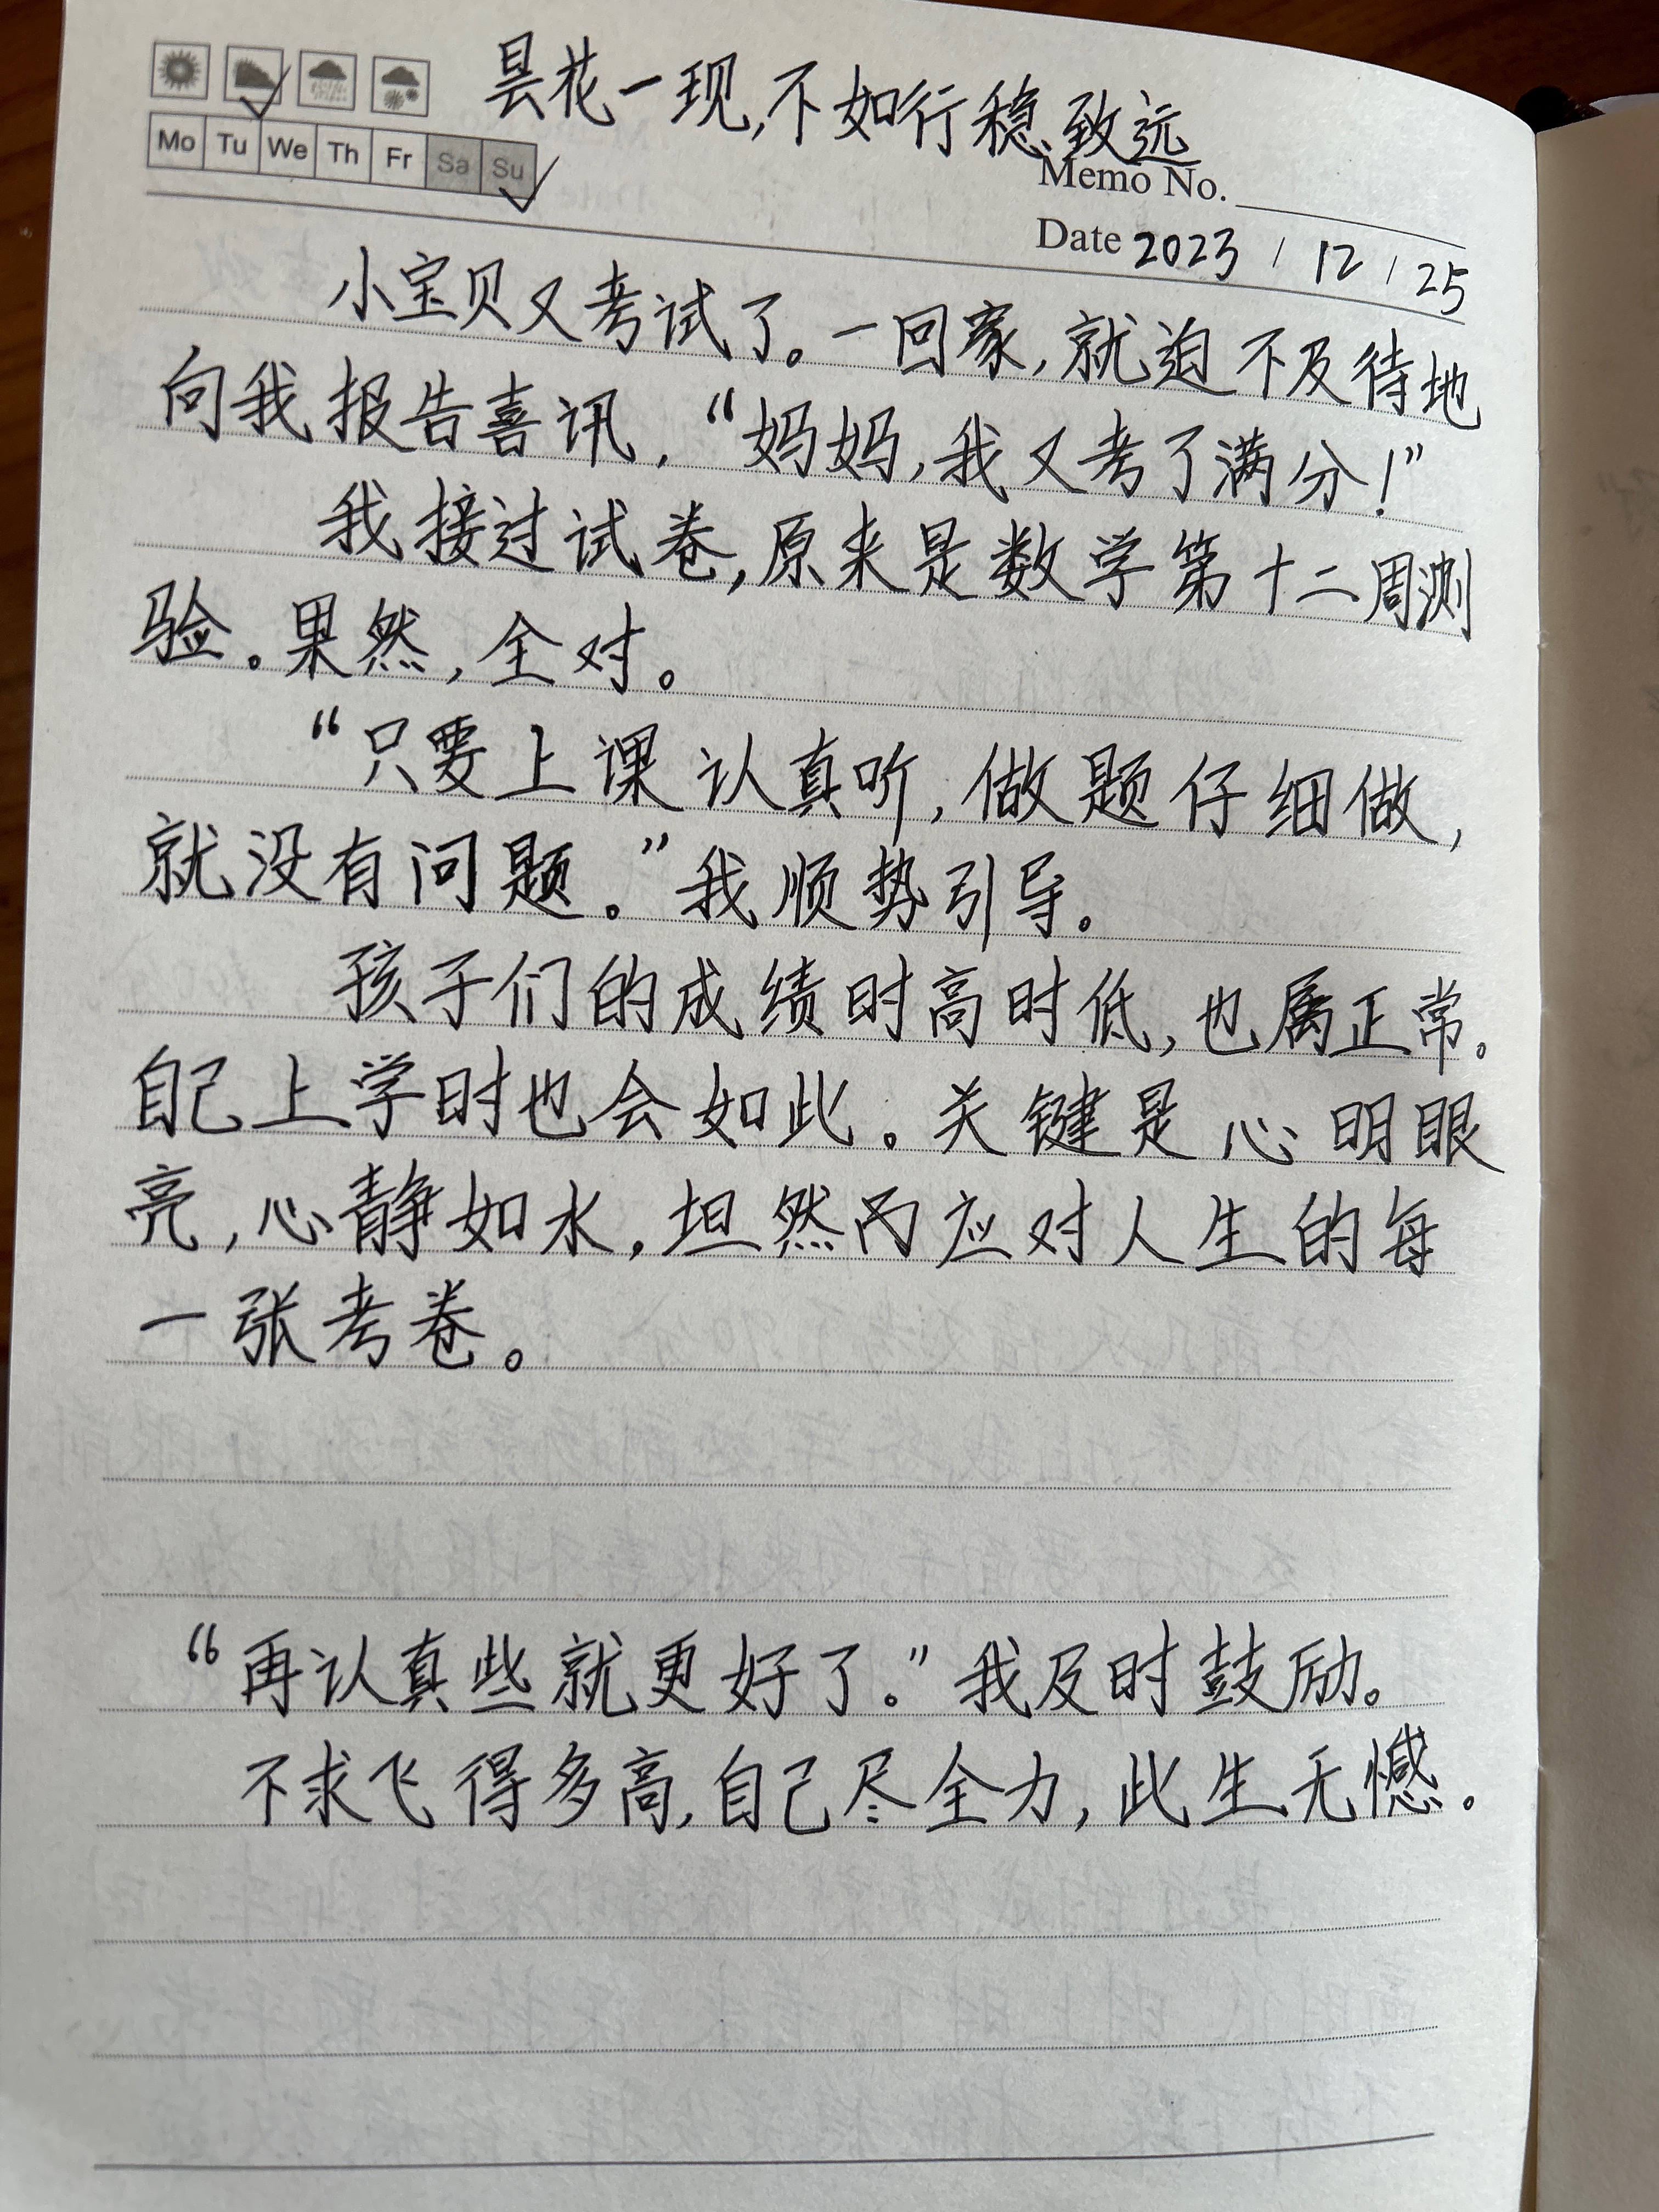 昙花一现,不如行稳致远
Mo Tu We Th Fr Sa Su
Memo No.
Date 2023 / 12 / 25
小宝贝又考试了。一回家,就迫不及待地
向我报告喜讯,“妈妈,我又考了满分!”
我接过试卷,原来是数学第十二周测
验。果然,全对。
“只要上课认真听,做题仔细做,
就没有问题。”我顺势引导。
孩子们的成绩时高时低,也属正常。
自己上学时也会如此。关键是心明眼
亮,心静如水,坦然而应对人生的每
一张考卷。
“再认真些就更好了。”我及时鼓励。
不求飞得多高,自己尽全力,此生无憾。